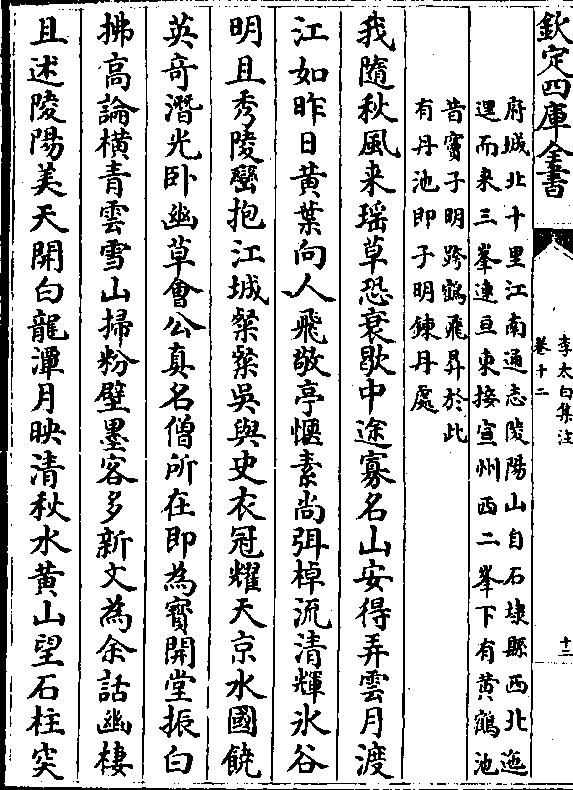 欽定四庫全書
李太白集注
卷十二
十二
府城北十里江南通志陵陽山自石埭縣西北迤
迤而來三峯連亘東接宣州西二峯下有黄鶴池
昔竇子明跨鶴飛昇於此
有丹池即子明鍊丹處
我隨秋風來瑶草恐衰歇中途寡名山安得弄雲月渡
江如昨日黄葉向人飛敬亭愜素尚弭棹流清輝氷谷
明且秀陵巒抱江城粲粲吳與史衣冠耀天京水國饒
英竒潛光卧幽草會公真名僧所在即為寳開堂振白
拂高論横青雲雪山掃粉壁墨客多新文為余話幽棲
且述陵陽美天開白龍潭月映清秋水黄山望石柱突